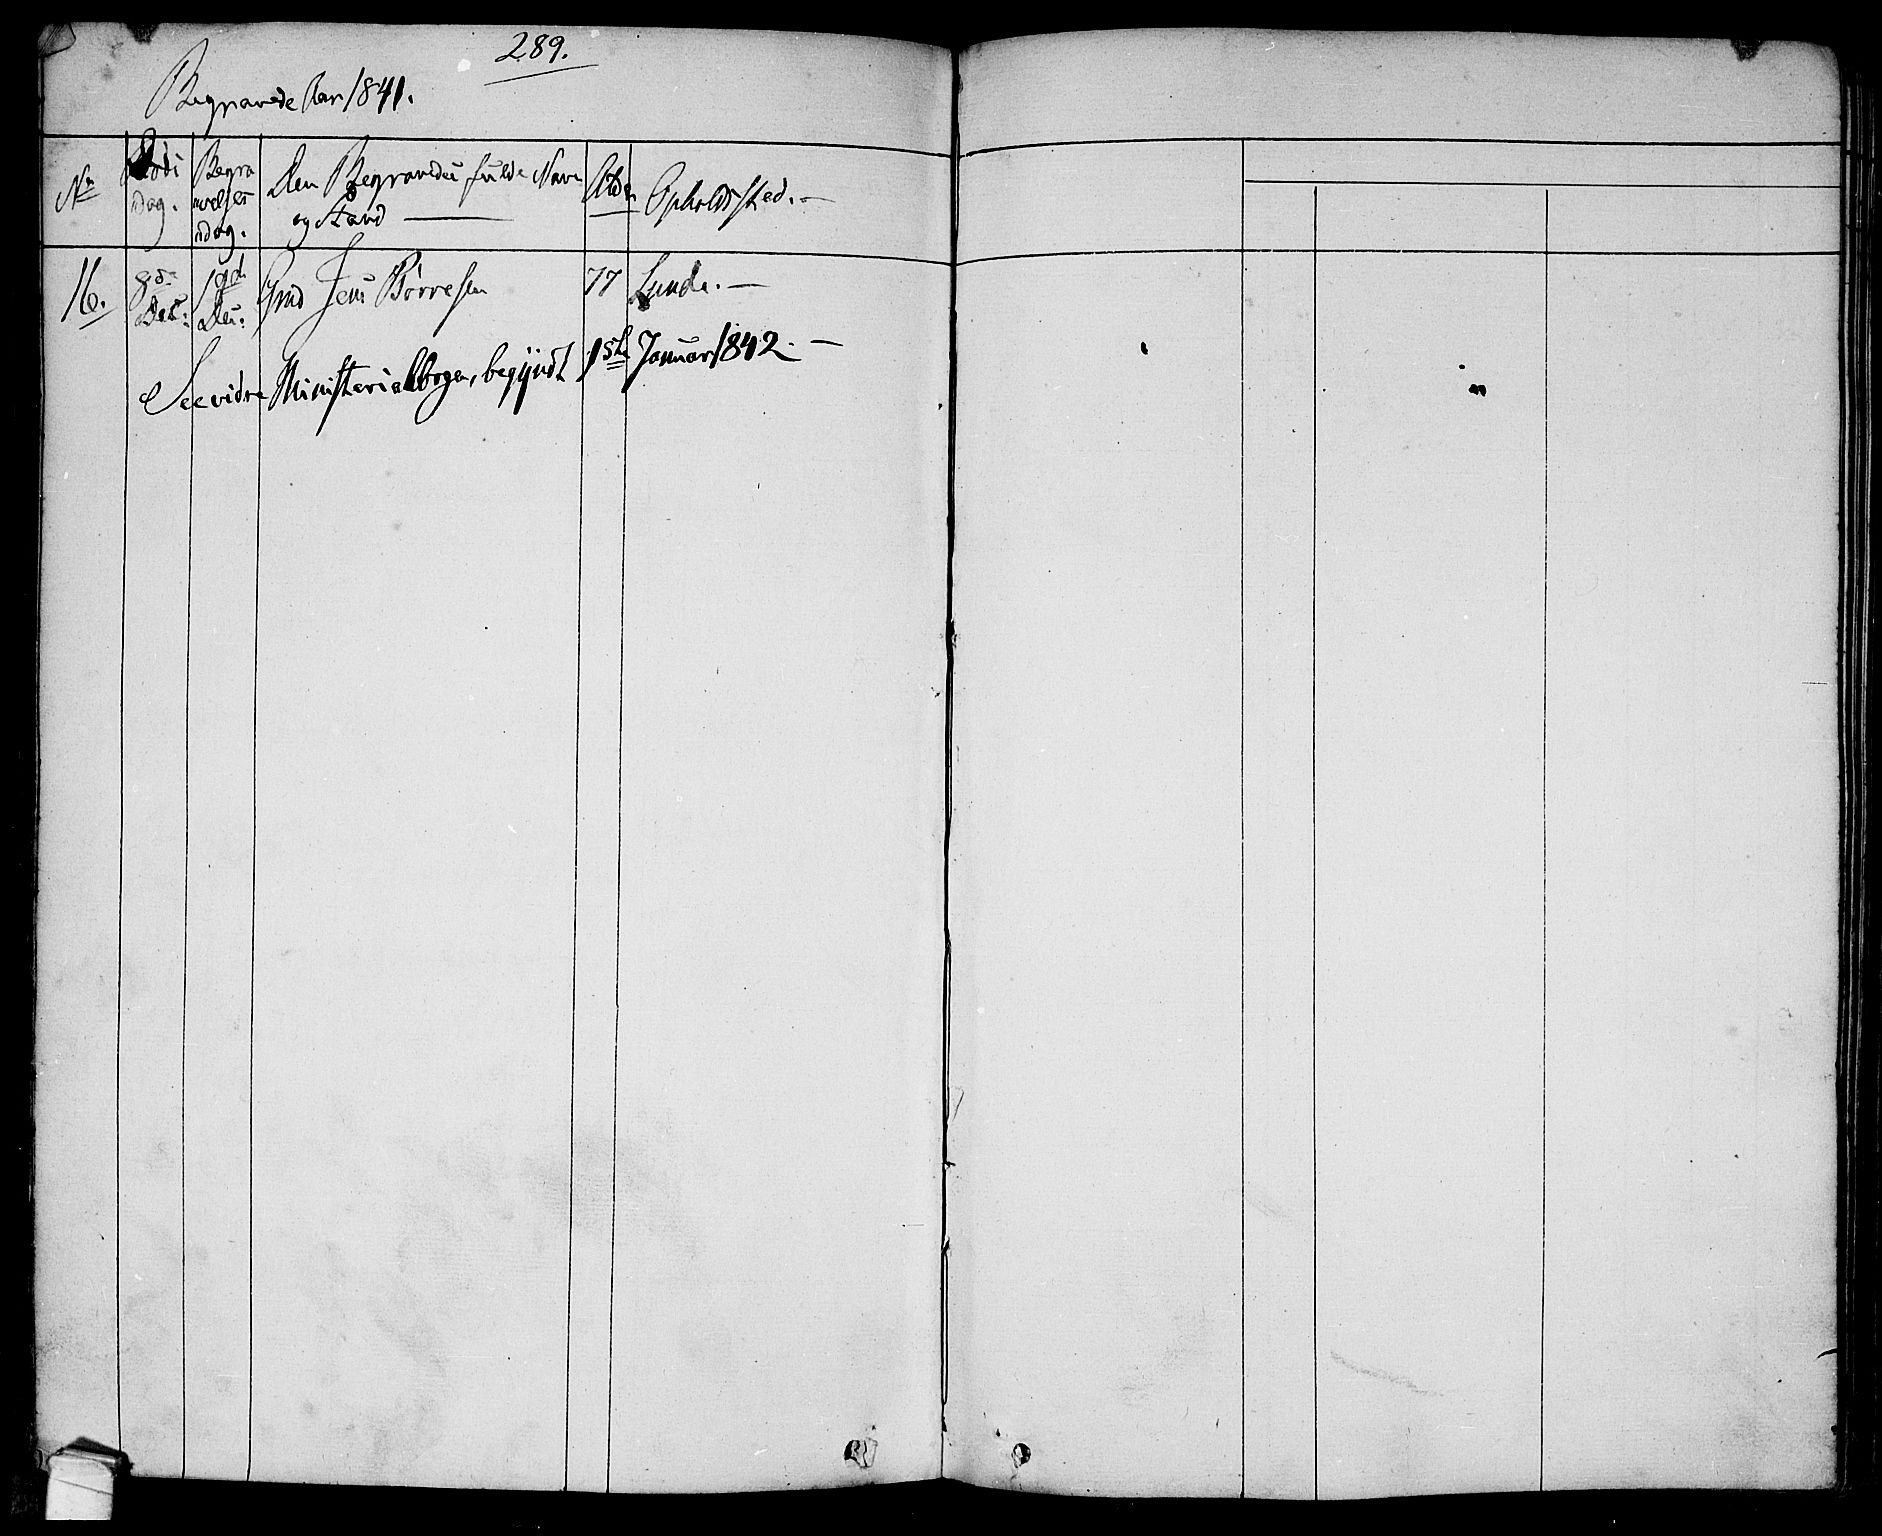 289.
Begravede Aar 1841.
No Døds Begra Den Begravedes fulde Navn Alder Opholdssted. —
dag. velses og Stand
dag.
16. 8de 19d Gmd Jens Børresen 77 Lunde. —
Dec: Dec:
See vidre Ministerialbogen, begÿndt 1ste Januar 1842. —